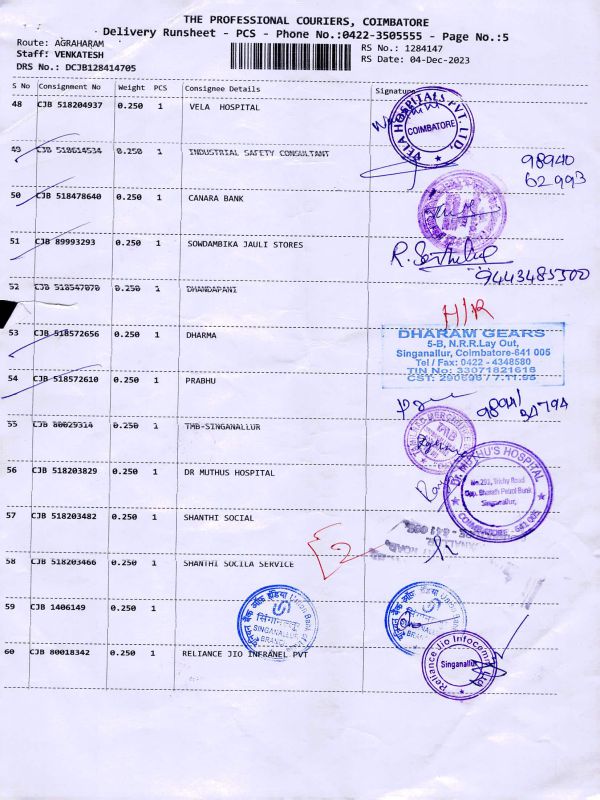 THE PROFESSIONAL COURIERS, COIMBATORE
Delivery Runsheet - PCS - Phone No.:0422-3505555 - Page No.:5
Route: AGRAHARAM
RS No.: 1284147
Staff: VENKATESH
RS Date: 04-Dec-2023
DRS No.: DCJB128414705
S No Consignment No Weight PCS Consignee Details Signature
48 CJB 518204937 0.250 1 VELA HOSPITAL
VELA HOSPITALS PVT. LTD.
COIMBATORE
49 CJB 518614534 0.250 1 INDUSTRIAL SAFETY CONSULTANT
98940
62993
50 CJB 518478640 0.250 1 CANARA BANK
51 CJB 89993293 0.250 1 SOWDAMBIKA JAULI STORES
9443485500
52 CJB 518547070 0.250 1 DHANDAPANI
H/R
53 CJB 518572656 0.250 1 DHARMA
DHARAM GEARS
5-B, N.R.R.Lay Out,
Singanallur, Coimbatore-641 005
Tel / Fax: 0422 - 4348580
TIN No: 33071821616
CST: 290696 / 7.11.95
54 CJB 518572610 0.250 1 PRABHU
55 CJB 80029314 0.250 1 TMB-SINGANALLUR
TMB
56 CJB 518203829 0.250 1 DR MUTHUS HOSPITAL
Dr. MUTHU'S HOSPITAL
No.293, Trichy Road
Opp. Bharath Petrol Bunk
Singanallur,
COIMBATORE - 641 005
57 CJB 518203482 0.250 1 SHANTHI SOCIAL
2
58 CJB 518203466 0.250 1 SHANTHI SOCILA SERVICE
59 CJB 1406149 0.250 1
यूनियन बैंक ऑफ इंडिया Union Bank of India
सिंगानल्लूर
SINGANALLUR
BRANCH
60 CJB 80018342 0.250 1 RELIANCE JIO INFRANEL PVT
Reliance Jio Infocomm Ltd
Singanallur